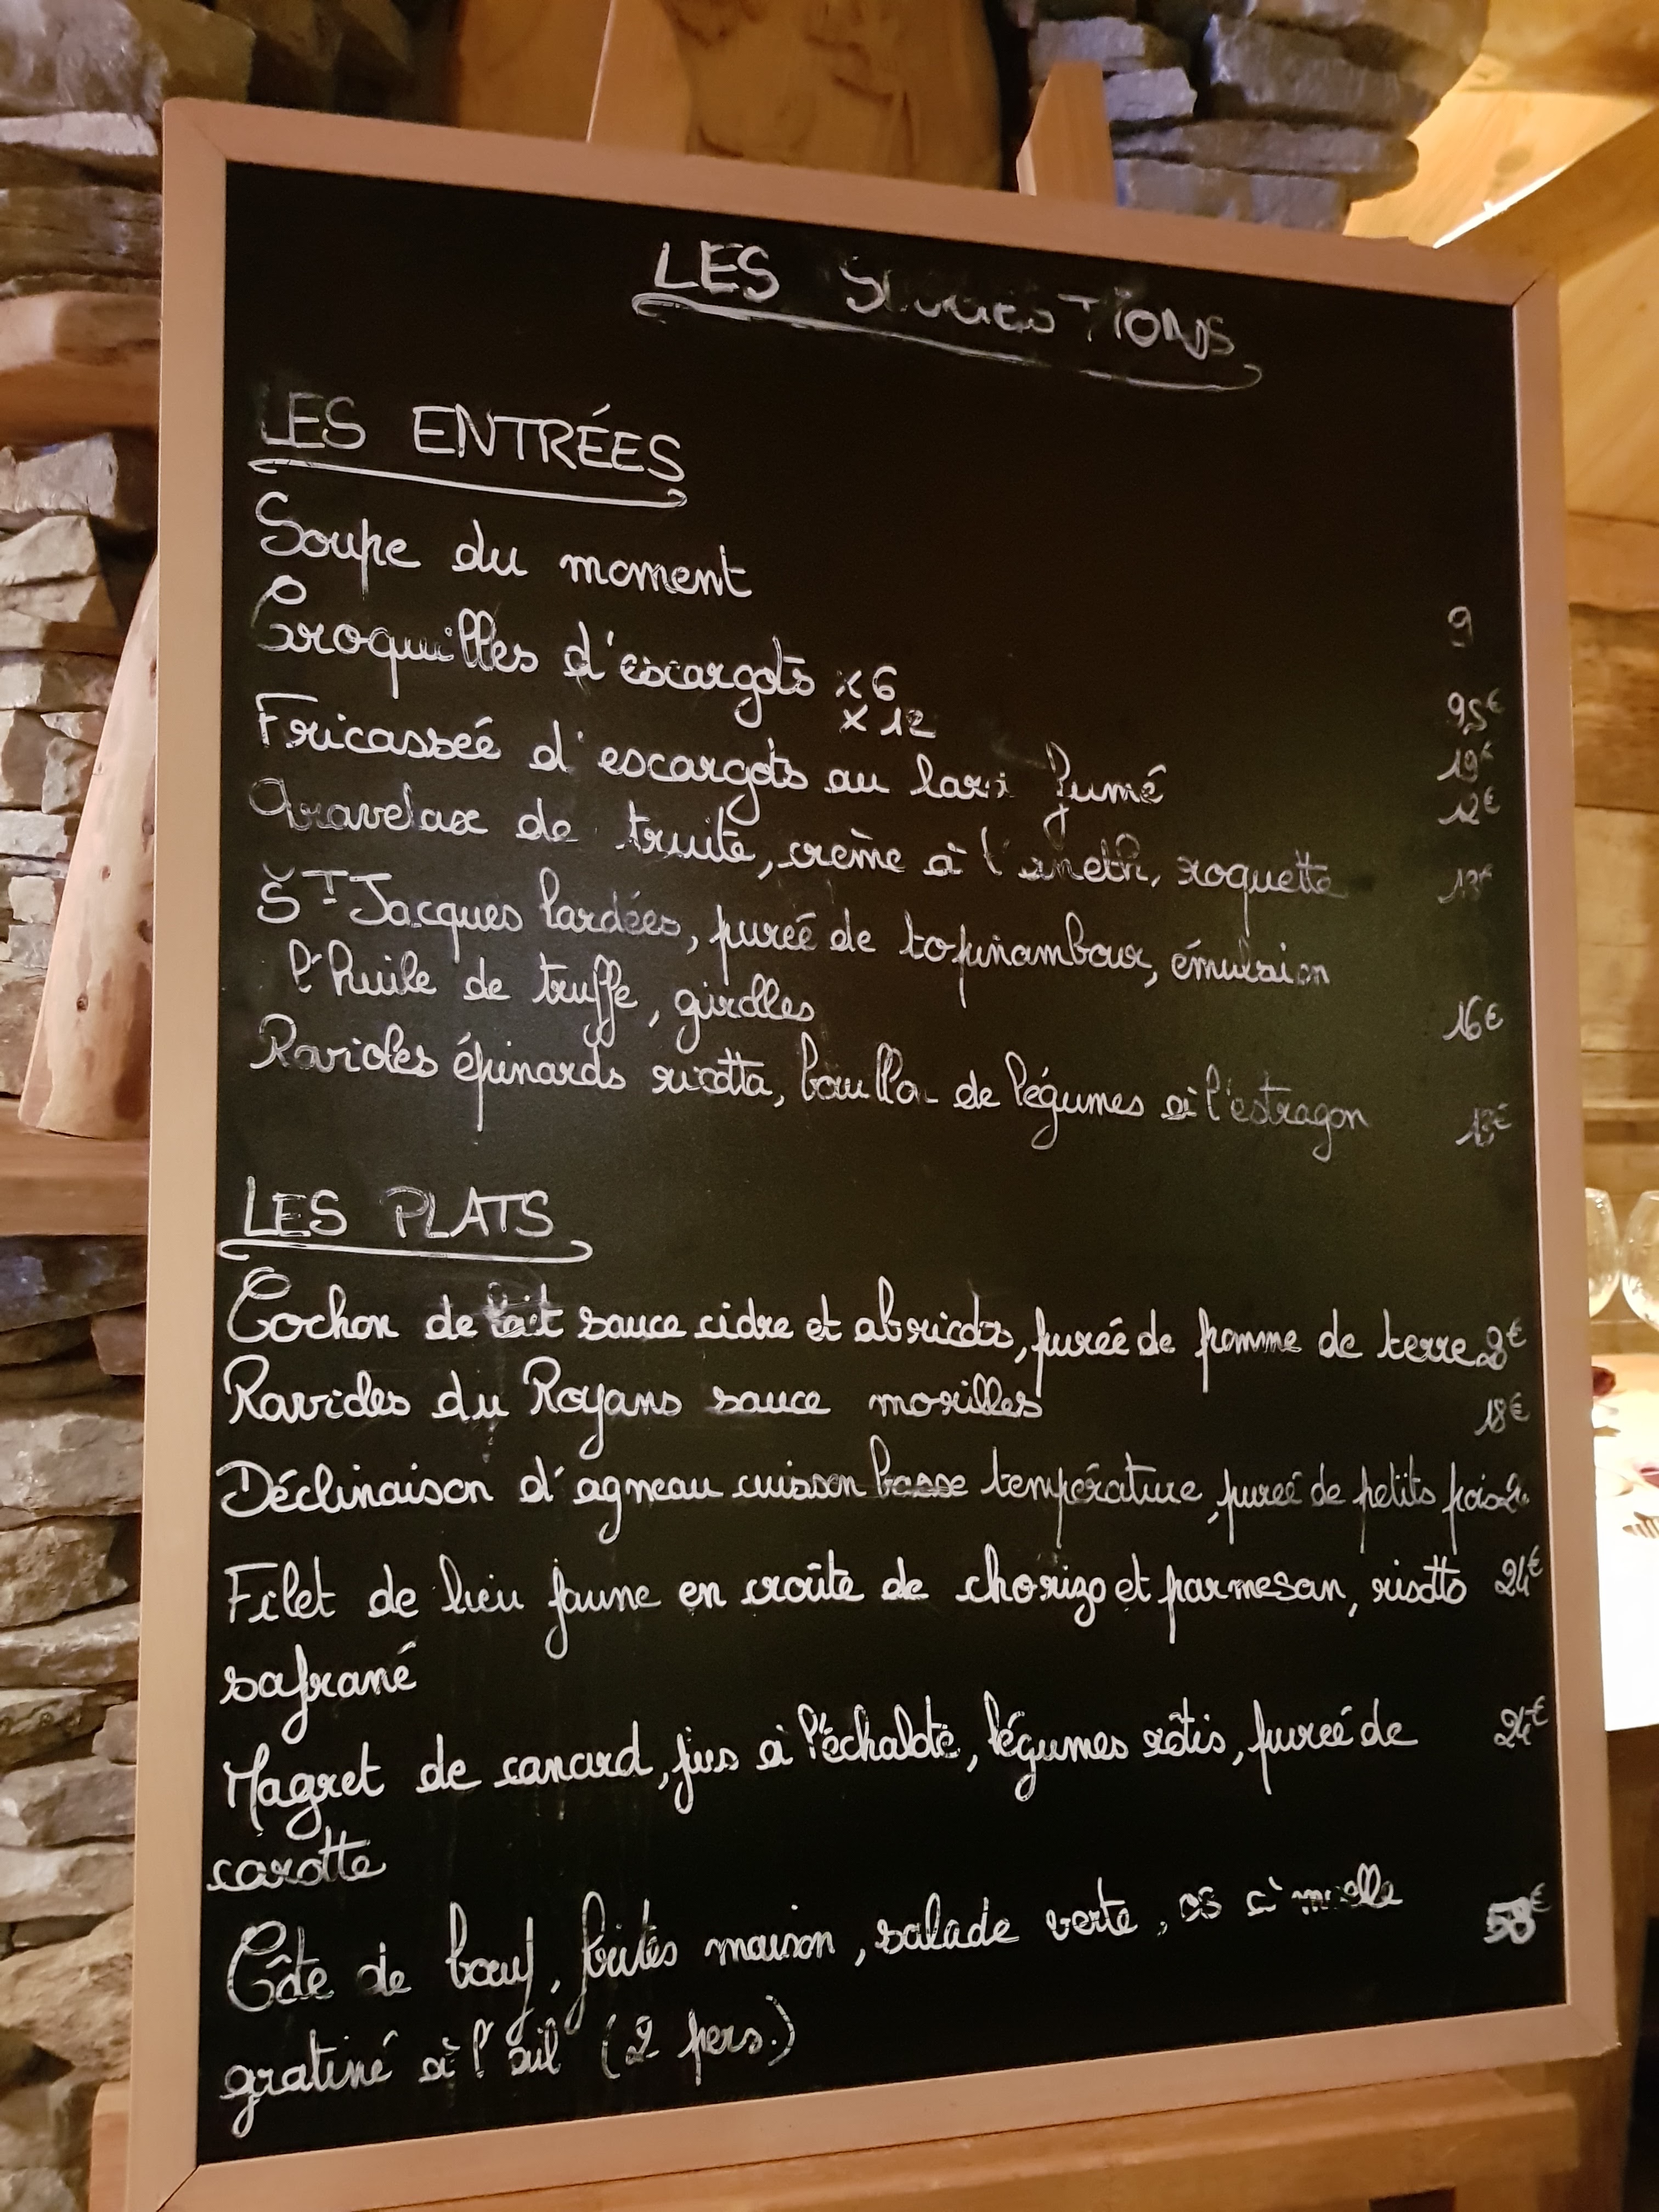 LES SUGGESTIONS
LES ENTRÉES
Soupe du moment 9
Croquilles d'escargots x6 9,5€
x12 19€
Fricasseé d'escargots au lard fumé 12€
Gravelax de truite, crème à l'aneth, roquette 13€
ST Jacques lardées, pureé de topinambour, émulsion
l'huile de truffe, girolles 16€
Ravioles épinards ricotta, bouillon de légumes à l'estragon
LES PLATS
Cochon de lait sauce cidre et abricots, pureé de pomme de terre
Ravioles du Royans sauce morilles 18€
Déclinaison d'agneau cuisson basse température, pureé de petits pois
Filet de lieu jaune en croûte de chorizo et parmesan, risotto 24€
safrané
Magret de canard, jus à l'échalote, légumes rôtis, pureé de 24€
carotte
Côte de bœuf, frites maison, salade verte, os à moelle
gratiné à l'ail (2 pers.)